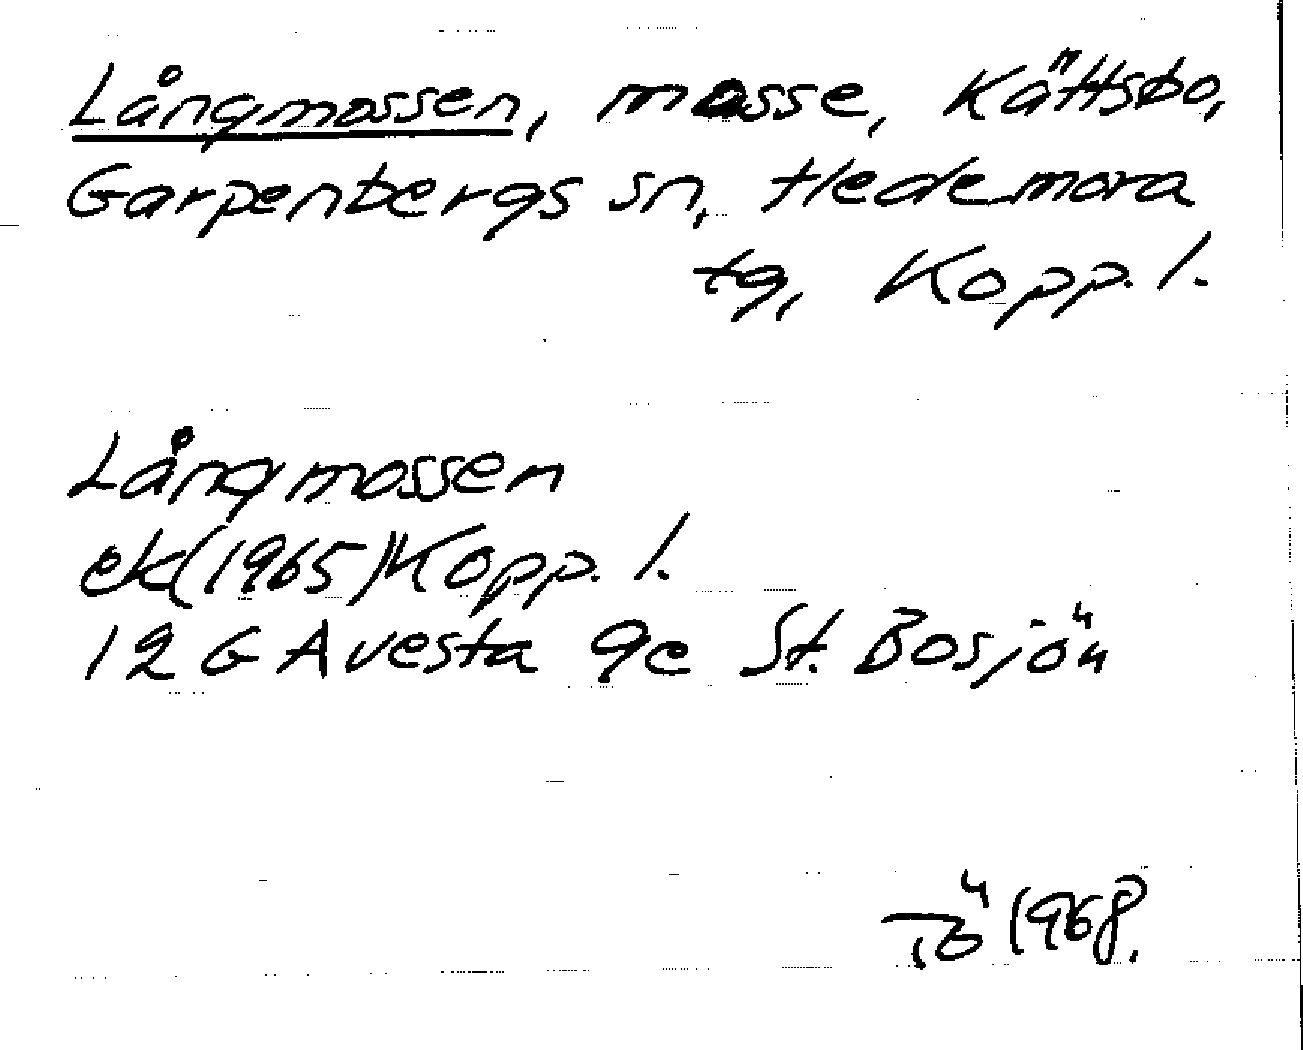 Långmossen, mosse, Kättsbo,
Garpenbergs sn, Hedemora
tg, Kopp. l.
Långmossen
ek (1965) Kopp. l.
12 G Avesta 9e St. Bosjön
TÖ 1968.